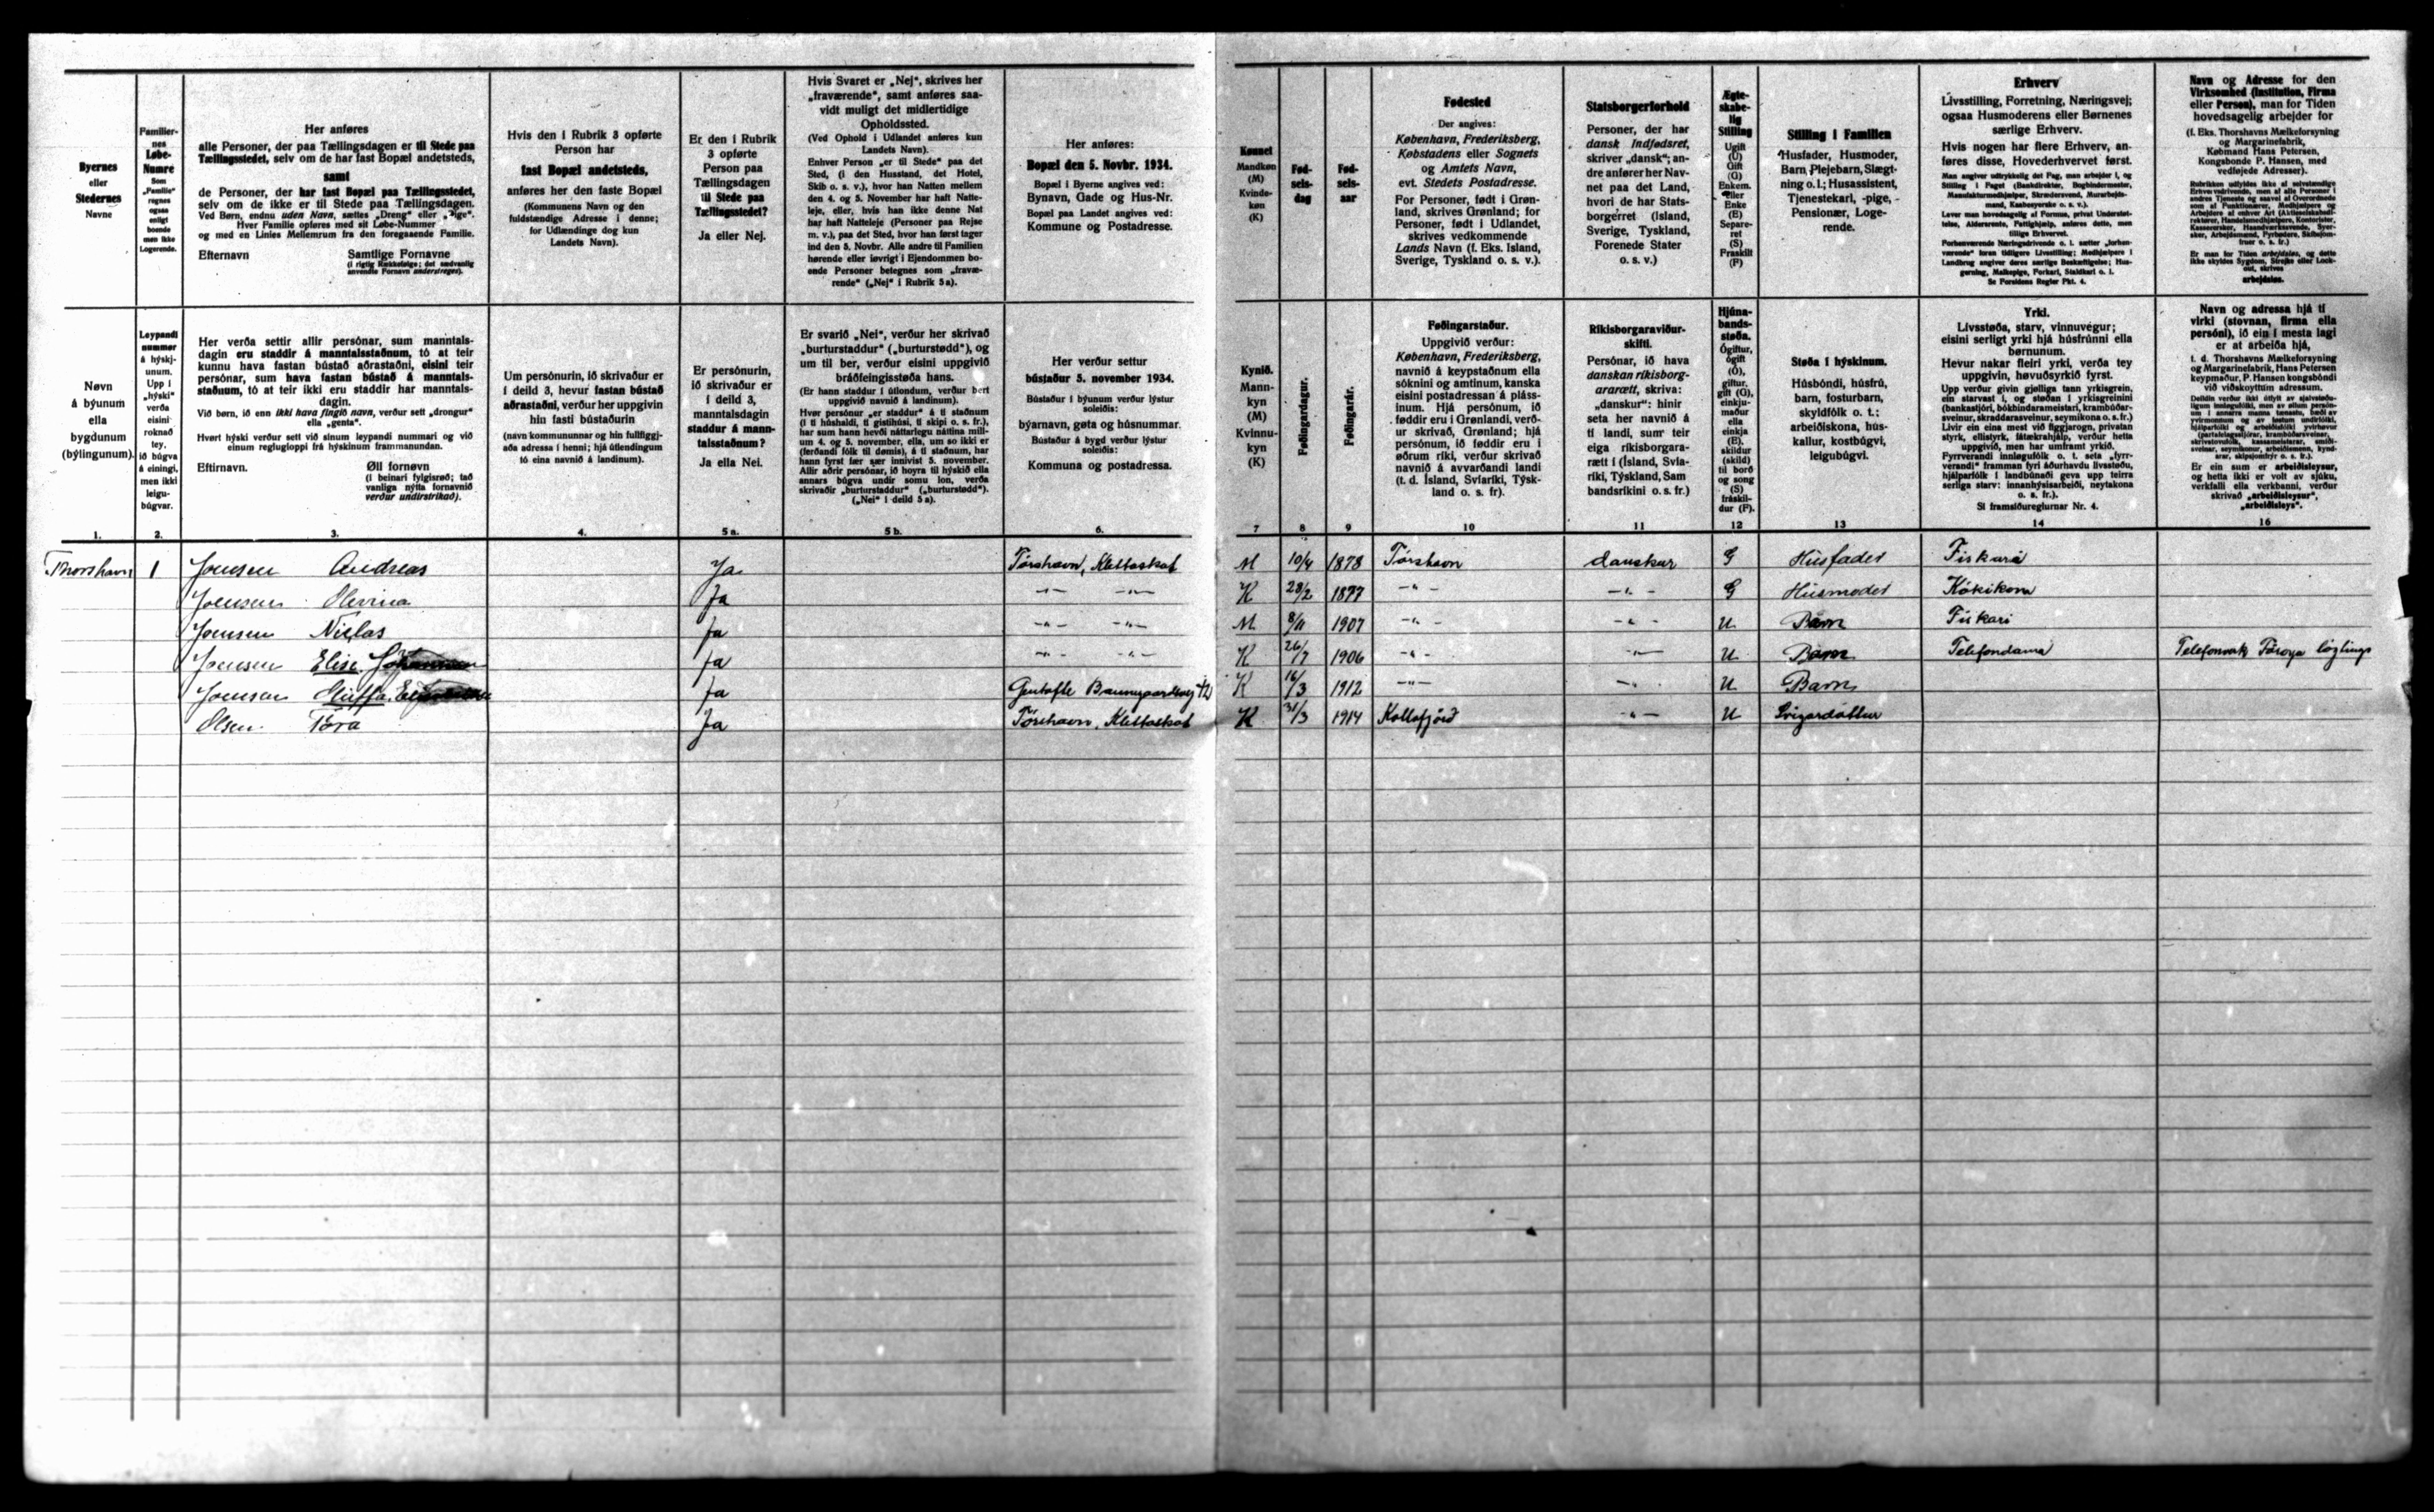 Byernes
eller
Stedernes
Navne
Familier-
nes
Løbe-
Numre
Som
„Familie“
regnes
ogsaa
enligt
boende
men ikke
Logerende.
Her anføres
alle Personer, der paa Tællingsdagen er til Stede paa
Tællingsstedet, selv om de har fast Bopæl andetsteds,
samt
de Personer, der har fast Bopæl paa Tællingsstedet,
selv om de ikke er til Stede paa Tællingsdagen.
Ved Børn, endnu uden Navn, sættes „Dreng“ eller „Pige“.
Hver Familie opføres med sit Løbe-Nummer
og med en Linies Mellemrum fra den foregaaende Familie.
Efternavn Samtlige Fornavne
(i rigtig Rækkefølge; det sædvanlig
anvendte Fornavn understreges).
Hvis den i Rubrik 3 opførte
Person har
fast Bopæl andetsteds,
anføres her den faste Bopæl
(Kommunens Navn og den
fuldstændige Adresse i denne;
for Udlændinge dog kun
Landets Navn).
Er den i Rubrik
3 opførte
Person paa
Tællingsdagen
til Stede paa
Tællingsstedet?
Ja eller Nej.
Hvis Svaret er „Nej“, skrives her
„fraværende“, samt anføres saa-
vidt muligt det midlertidige
Opholdssted.
(Ved Ophold i Udlandet anføres kun
Landets Navn).
Enhver Person „er til Stede“ paa det
Sted, (i den Husstand, det Hotel,
Skib o. s. v.), hvor han Natten mellem
den 4. og 5. November har haft Natte-
leje, eller, hvis han ikke denne Nat
har haft Natteleje (Personer paa Rejse
m. v.), paa det Sted, hvor han først tager
ind den 5. Novbr. Alle andre til Familien
hørende eller iøvrigt i Ejendommen bo-
ende Personer betegnes som „fravæ-
rende“ („Nej“ i Rubrik 5a).
Her anføres:
Bopæl den 5. Novbr. 1934.
Bopæl i Byerne angives ved:
Bynavn, Gade og Hus-Nr.
Bopæl paa Landet angives ved:
Kommune og Postadresse.
Kønnet
Mandkøn
(M)
Kvinde-
køn
(K)
Fød-
sels-
dag
Fød-
sels-
aar
Fødested
Der angives:
København, Frederiksberg,
Købstadens eller Sognets
og Amtets Navn,
evt. Stedets Postadresse.
For Personer, født i Grøn-
land, skrives Grønland; for
Personer, født i Udlandet,
skrives vedkommende
Lands Navn (f. Eks. Island,
Sverige, Tyskland o. s. v.).
Statsborgerforhold
Personer, der har
dansk Indfødsret,
skriver „dansk“; an-
dre anfører her Nav-
net paa det Land,
hvori de har Stats-
borgerret (Island,
Sverige, Tyskland,
Forenede Stater
o. s. v.)
Ægte-
skabe-
lig
Stilling
Ugift
(U)
Gift
(G)
Enkem.
eller
Enke
(E)
Separe-
ret
(S)
Fraskilt
(F)
Stilling i Familien
Husfader, Husmoder,
Barn, Plejebarn, Slægt-
ning o. l.; Husassistent,
Tjenestekarl, -pige,
Pensionær, Loge-
rende.
Erhverv
Livsstilling, Forretning, Næringsvej;
ogsaa Husmoderens eller Børnenes
særlige Erhverv.
Hvis nogen har flere Erhverv, an-
føres disse, Hovederhvervet først.
Man angiver udtrykkelig det Fag, man arbejder i, og
Stilling i Faget (Bankdirektør, Bogbindermester,
Manufakturmedhjælper, Skræddersvend, Murarbejds-
mand, Kasbesyerske o. s. v.).
Lever man hovedsagelig af Formue, privat Understøt-
telse, Aldersrente, Fattighjælp, anføres dette, men
tillige Erhvervet.
Forhenværende Næringsdrivende o. l. sætter „forhen-
værende“ foran tidligere Livsstilling; Medhjælpere i
Landbrug angiver deres særlige Beskæftigelse; Hus-
gerning, Malkepige, Forkarl, Staldkarl o. l.
Se Forsidens Regler Pkt. 4.
Navn og Adresse for den
Virksomhed (Institution, Firma
eller Person), man for Tiden
hovedsagelig arbejder for
(f. Eks. Thorshavns Mælkeforsyning
og Margarinefabrik,
Købmand Hans Petersen,
Kongsbonde P. Hansen, med
vedføjede Adresser).
Er man for Tiden arbejdsløs, og dette
ikke skyldes Sygdom, Strejke eller Lock-
out, skrives
arbejdsløs.
Nøvn
á býunum
ella
bygdunum
(býlingunum).
Leypandi
nummer
á hýskj-
unum.
Upp í
„hýski“
verða
eisini
roknað
tey,
ið búgva
á eíningi,
men ikki
leigu-
búgvar.
Her verða settir allir persónar, sum manntals-
dagin eru staddir á manntalsstaðnum, tó at teir
kunnu hava fastan bústað aðrastaðni, eisini teir
persónar, sum hava fastan bústað á manntals-
staðnum, tó at teir ikki eru staddir har manntals-
dagin.
Við børn, ið enn ikki hava fingið navn, verður sett „drongur“
ella „genta“.
Hvørt hýski verður sett við sínum leypandi nummari og við
einum reglugloppi frá hýskinum frammanundan.
Eftirnavn. Øll fornøvn
(í beinari fylgisrøð; tað
vanliga nýtta fornavnið
verður undirstrikað).
Um persónurin, ið skrivaður er
í deild 3, hevur fastan bústað
aðrastaðni, verður her uppgivin
hin fasti bústaðurin
(navn kommununnar og hin fullfiggj-
aða adressa í henni; hjá útlendingum
tó eina navnið á landinum).
Er persónurin,
ið skrivaður er
í deild 3,
manntalsdagin
staddur á mann-
talsstaðnum?
Ja ella Nei.
Er svarið „Nei“, verður her skrivað
„burturstaddur“ („burturstødd“), og
um til ber, verður eisini uppgivið
bráðfeingisstøða hans.
(Er hann staddur í útlondum, verður bert
uppgivið navnið á landinum).
Hvør persónur „er staddur“ á tí staðnum
(í tí húshaldi, tí gistihúsi, tí skipi o. s. fr.),
har sum hann hevði náttarlegu náttina mill-
um 4. og 5. november, ella, um so ikki er
(ferðandi fólk til dømis), á tí staðnum, har
hann fyrst fær sær innivist 5. november.
Allir aðrir persónar, ið hoyra til hýskið ella
annars búgva undir somu lon, verða
skrivaðir „burturstaddur“ („burturstødd“).
(„Nei“ í deild 5a).
Her verður settur
bústaður 5. november 1934.
Bústaður í býunum verður lýstur
soleiðis:
býarnavn, gøta og húsnummar.
Bústaður á bygd verður lýstur
soleiðis:
Kommuna og postadressa.
Kynið.
Mann-
kyn
(M)
Kvinnu-
kyn
(K)
Føðingardagur.
Føðingarár.
Føðingarstaður.
Uppgivið verður:
København, Frederiksberg,
navnið á keypstaðnum ella
sóknini og amtinum, kanska
eisini postadressan á pláss-
inum. Hjá persónum, ið
føddir eru í Grønlandi, verð-
ur skrivað, Grønland; hjá
persónum, ið føddir eru í
øðrum ríki, verður skrivað
navnið á avvarðandi landi
(t. d. Ísland, Svíaríki, Týsk-
land o. s. fr).
Ríkisborgaraviður-
skifti.
Persónar, ið hava
danskan ríkisborg-
ararætt, skriva:
„danskur“: hinir
seta her navnið á
tí landi, sum teir
eiga ríkisborgara-
rætt í (Ísland, Svía-
ríki, Týskland, Sam
bandsríkini o. s. fr.)
Hjúna-
bands-
støða.
Ógiftur,
ógift
(Ó),
giftur,
gift (G),
einkju-
maður
ella
einkja
(E).
skildur
(skild)
til borð
og song
(S)
fráskil-
dur (F).
Støða í hýskinum.
Húsbóndi, húsfrú,
barn, fosturbarn,
skyldfólk o. t.;
arbeiðiskona, hús-
kallur, kostbúgvi,
leigubúgvi.
Yrki.
Lívsstøða, starv, vinnuvegur;
eisini serligt yrki hjá húsfrúnni ella
børnunum.
Hevur nakar fleiri yrki, verða tey
uppgivin, høvuðsyrkið fyrst.
Upp verður givin gjølliga tann yrkisgrein,
ein starvast í, og støðan í yrkisgreinini
(bankastjóri, bókbindarameistari, krambúðar-
sveinur, skraddarasveinur, seymikona o. s. fr.)
Livir ein eina mest við figgjarogn, privatan
styrk, ellistyrk, fátækrahjálp, verður hetta
uppgivið, men har umframt yrkið.
Fyrrverandi innløgufólk o. t. seta „fyrr-
verandi“ framman fyri áðurhavdu lívsstøðu,
hjálparfólk í landbúnaði geva upp teirra
serliga starv: innanhýsisarbeiði, neytakona
o. s. fr.).
Sí framsíðureglurnar Nr. 4.
Navn og adressa hjá tí
virki (stovnan, firma ella
persóni), ið ein í mesta lagi
er at arbeiða hjá,
t. d. Thorshavns Mælkeforsyning
og Margarinefabrik, Hans Petersen
keypmaður, P. Hansen kongsbóndi
við viðskoyttum adressum.
Er ein sum er arbeiðsleysur,
og hetta ikki er volt av sjúku,
verkfalli ella verkbanni, verður
skrivað „arbeiðsleysur“,
„arbeiðsleys“.
1. 2. 3. 4. 5 a. 5 b. 6. 7 8 9 10 11 12 13 14 16
Thorshavn 1 Joensen Andreas Ja Tórshavn, Klettaskot M 10/4 1878 Tórshavn danskur G Húsfader Fiskari
Joensen Olevina Ja -"- -"- K 28/2 1877 -"- -"- G Húsmoder Kókikona
Joensen Niclas Ja -"- -"- M 8/11 1907 -"- -"- U Barn Fiskari
Joensen Elise Ja -"- -"- K 26/7 1906 -"- -"- U Barn Telefondama Telefonverk Føroya løgtings
Joensen Ja Gentofte K 16/3 1912 -"- -"- U Barn
Olsen Tóra Ja Tórshavn, Klettaskot K 31/3 1914 Kollafjørð -"- U